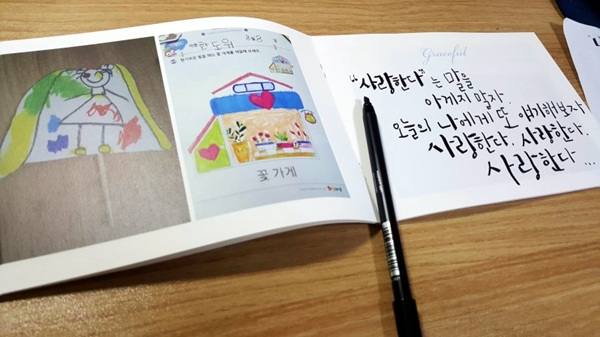 한도위
꽃가게
Graceful
"사랑한다"는 말을
아끼지 말자.
오늘의 나에게 또 얘기해보자
사랑한다. 사랑한다.
사랑한다 ...